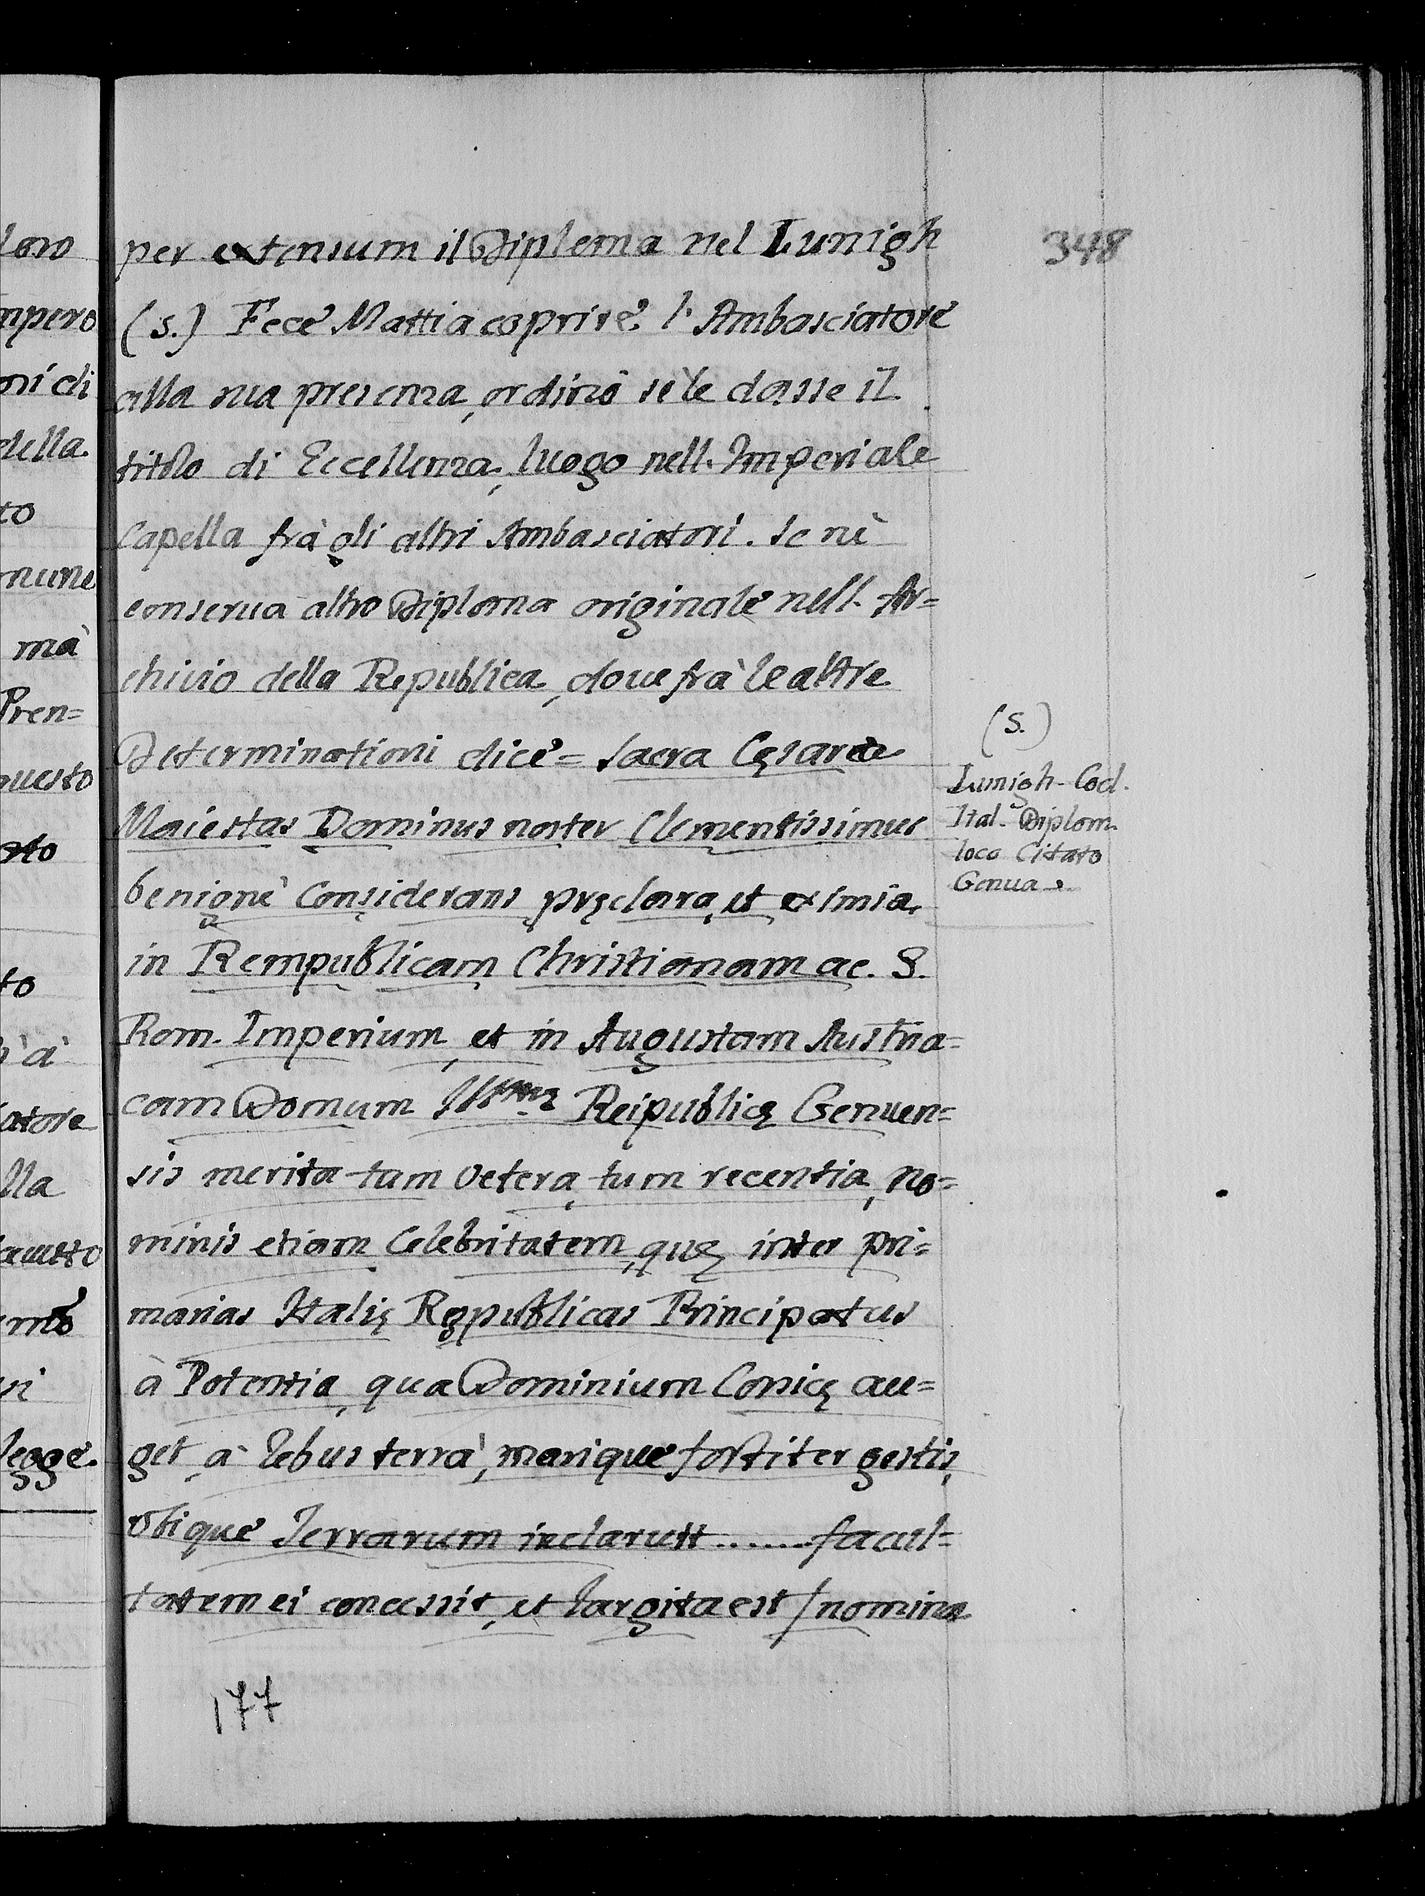 348
per extensum il Diploma nel Lunigh
(s.) Fece Mattia coprire l'Ambasciatore
alla sua presenza, ordinò se le dasse il
titolo di Eccellenza, luogo nell'Imperiale
Capella frà gli altri Ambasciatori. Se nè
conserua altro Diploma originale nell'Ar=
chivio della Republica, doue frà le altre
Determinationi dice = Sacra Cęsarea
Maiestas Dominus noster Clementissimus
benignè Considerans pręclara, et eximia,
in Rempublicam Christianam ac. S.
Rom. Imperium, et in Augustam Austria=
cam Domum Ill.mę Reipublicę Genuen=
sis merita tam vetera, tum recentia, no=
minis etiam Celebritatem, quę inter pri=
marias Italię Respublicas Principatus
à Potentia, qua Dominium Corsicę au=
get, à rebus terrà, marique fortiter gestis,
vbique Terrarum inclaruit ...... facul=
tatem ei concessit, et largita est / nomina
(s.)
Lunigh-Cod.
Ital. Diplom.
loco Citato
Genua
177
loro
mpero
oni di
della
to
mune
mà
Pren=
questo
to
à
atore
lla
ento
ri
legge.